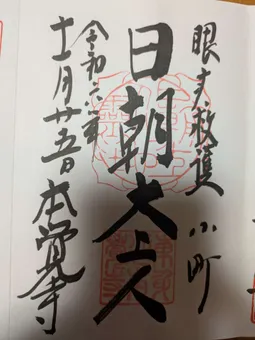 眼守救護 小町
日朝大上人
令和六年
十二月廿五日 本覚寺